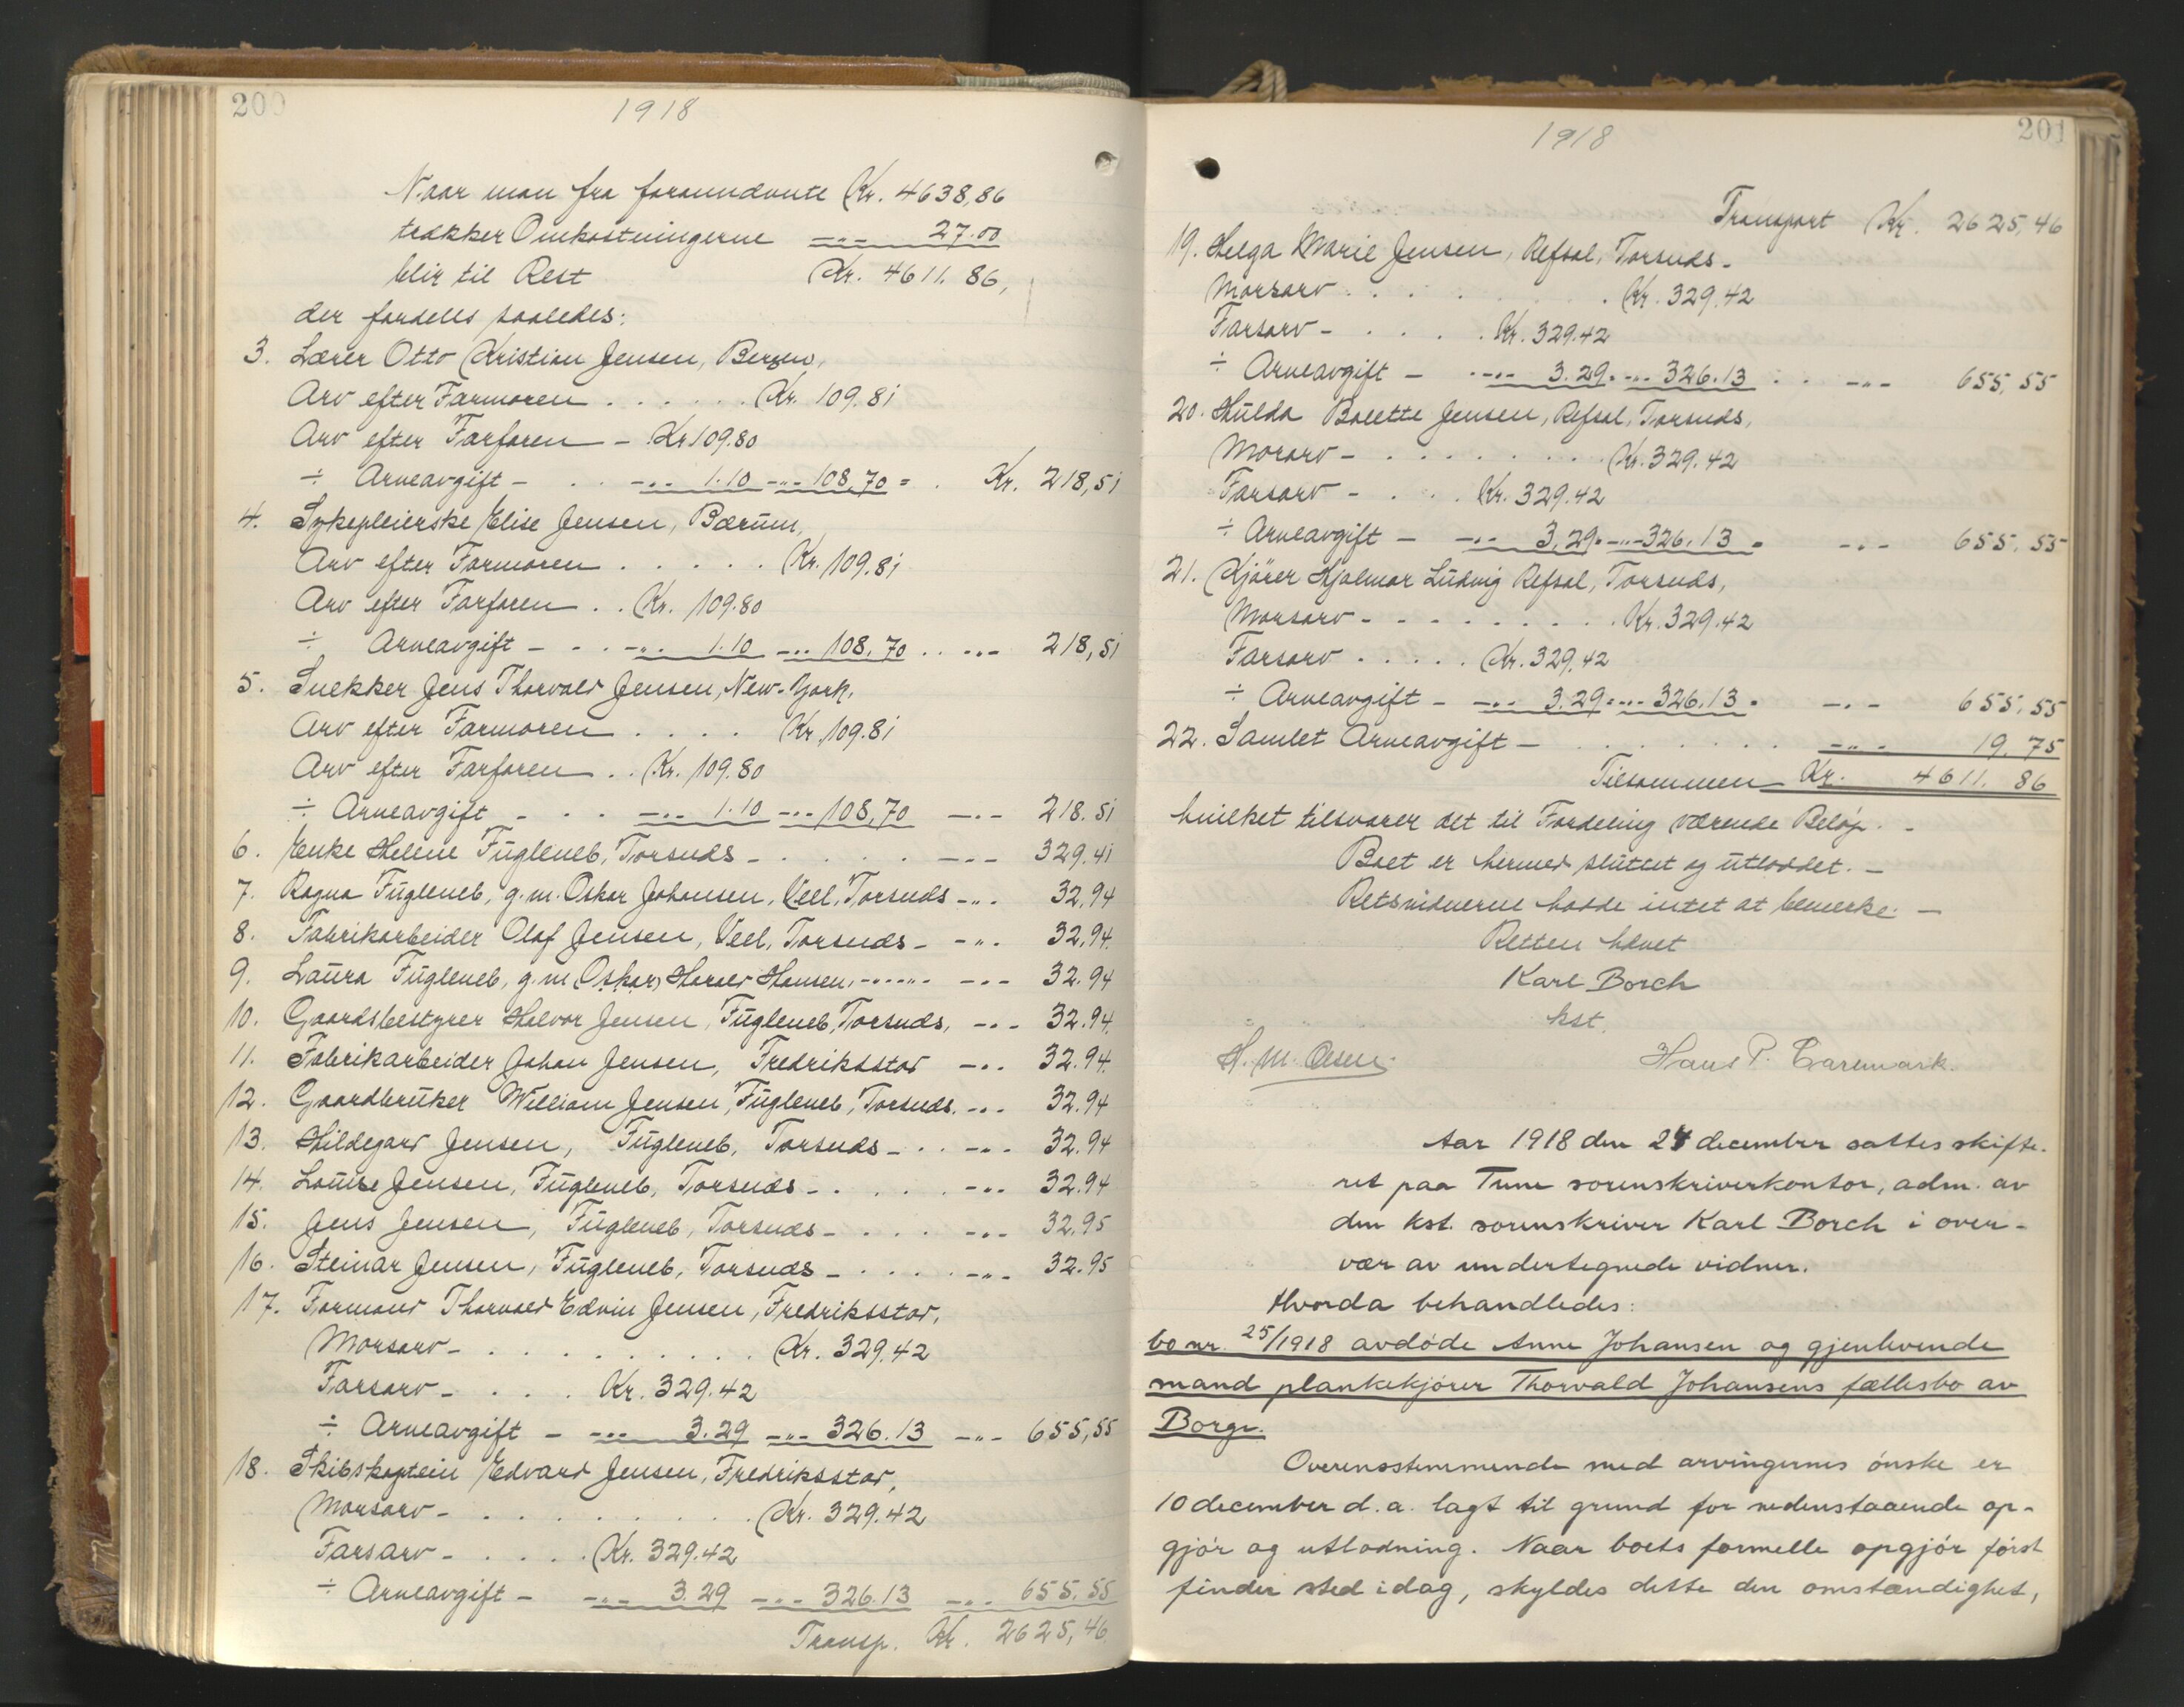 200
1918
Naar man fra foranndvnte Kr. 4638,86
trækker Omkostningerne -"- 27.00
blir til Rest Kr. 4611. 86,
der fordeles saaledes:
3. Lærer Otto Kristian Jensen, Bergen,
Arv efter Farmoren . . . . . . Kr. 109.81
Arv efter Farfaren - Kr 109.80
÷ Arveavgift - . . -"- 1.10 -"- 108,70 = . Kr. 218,51
4. Sykepleierske Elise Jensen, Bærum,
Arv efter Farmoren . . . . . Kr. 109.81
Arv efter Farfaren . . Kr. 109.80
÷ Arveavgift - . . -"- 1.10 -"- 108,70 . . -"- 218,51
5. Snekker Jens Thorvald Jensen, New-York,
Arv efter Farmoren . . . . Kr. 109.81
Arv efter Farfaren . . Kr. 109.80
÷ Arveavgift - . . -"- 1.10 -"- 108,70 -"- 218.51
6. Enke Helene Fugleneb, Torsnæs - . . . . . -"- 329.41
7. Ragna Fugleneb, g.m. Oskar Johansen, Veel, Torsnæs -"- 32,94
8. Fabrikarbeider Olaf Jensen, Veel, Torsnæs - -"- 32,94.
9. Laura Fugleneb, g.m (Oskar) Harald Hansen, -"- -"- -"- 32.94
10. Gaardsbestyrer Halvor Jensen, Fugleneb, Torsnæs, -"- 32.94.
11. Fabrikarbeider Johan Jensen, Fredriksstad -"- 32.94.
12. Gaardbruker William Jensen, Fugleneb, Torsnæs. -"- 32.94
13. Hildegard Jensen, Fugleneb, Torsnæs - . . -"- 32.94
14. Louise Jensen, Fugleneb, Torsnæs - . . . . -"- 32.94
15. Jens Jensen, Fugleneb, Torsnæs - . . . -"- 32,95
16. Steinar Jensen, Fugleneb, Torsnæs - . . . . -"- 32.95
17. Formand Thorvald Edvin Jensen, Fredriksstad,
Morsarv - . . . . . . . . . Kr. 329.42
Farsarv - . . . Kr. 329.42
÷ Arveavgift - -"- 3.29 -"- 326.13 -"- 655,55
18. Skibskaptein Edvard Jensen, Fredriksstad,
Morsarv - . . . . . . . . . Kr. 329.42
Farsarv - . . . . Kr. 329.42
÷ Arveavgift - -"- 3.29 -"- 326.13 -"- 655,55
Transp. Kr. 2625,46
201
1918
Transport Kr. 2625,46
19. Helga Marie Jensen, Refsal, Torsnæs -
Morsarv . . . . . . . Kr. 329.42
Farsarv - . . . . Kr. 329.42
÷ Arveavgift - -"- 3.29 = -"- 326.13 . . -"- 655,55
20. Hulda Bolette Jensen, Refsal, Torsnæs,
Morarv - . . . . . . . . Kr. 329.42
Farsarv - . . . Kr. 329.42
÷ Arveavgift - -"- 3,29 = -"- 326.13 = -"- 655.55
21. Kjörer Hjalmar Ludvig Refsal, Torsnæs,
Morsarv - . . . . . . . . Kr. 329.42
Farsarv . . . . . Kr. 329,42
÷ Arveavgift - -"- 3.29 = -"- 326.13 = -"- 655,55
22. Samlet Arveavgift - . . . . . . . -"- 19.75
Tilsammen Kr. 4611. 86
hvilket tilsvarer det til Fordeling værende Beløp. -
Boet er hermed sluttet og utloddet. -
Retsvidnerne hadde intet at bemerke. -
Retten hævet
Karl Borch
kst.
H. M. Olsen. Hans P. Caremark.
Aar 1918 den 24 december sattes skifte-
ret paa Tune sorenskriverkontor, adm. av
den kst. sorenskriver Karl Borch i over-
vær av undertegnede vidner.
Hvorda behandledes:
bo nr. 25/1918 avdøde Anne Johansen og gjenlevende
mand plankekjører Thorvald Johansens fællesbo av
Borge.
Overensstemmende med arvingernes ønske er
10 december d.a. lagt til grund for nedenstaaende op-
gjør og utlodning. Naar boets formelle opgjør først
finder sted idag, skyldes dette den omstændighet,